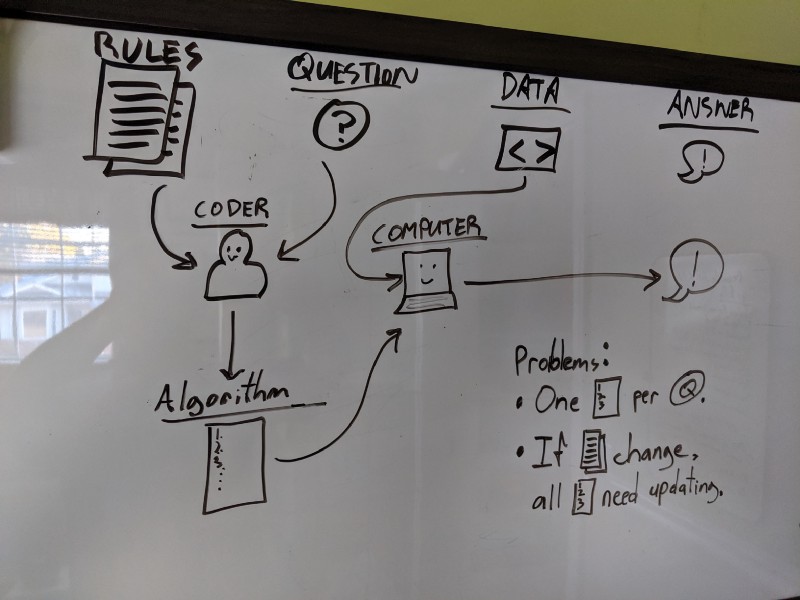 RULES
QUESTION
?
DATA
< >
ANSWER
!
CODER
COMPUTER
!
Algorithm
1.
2.
3.
Problems:
• One 1 2 3 per Q.
• If change,
all 1 2 3 need updating.